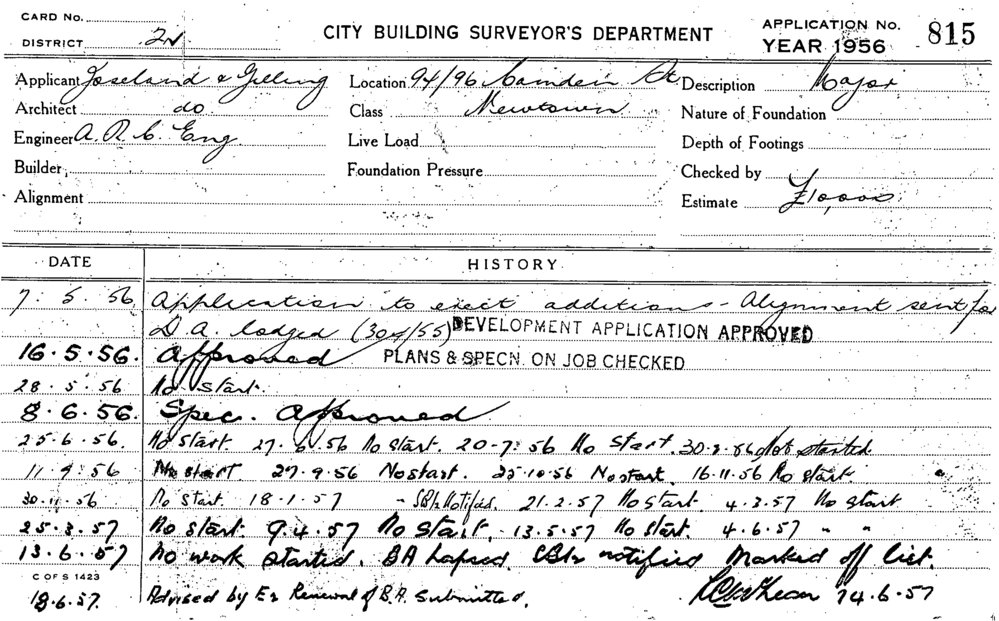 CARD No.
DISTRICT 2N
CITY BUILDING SURVEYOR'S DEPARTMENT
APPLICATION No. 815
YEAR 1956
Applicant Joseland & Gilling
Location 94/96 Camden St
Description Major
Architect do
Class Newtown
Nature of Foundation
Engineer A. R. C. Eng
Live Load
Depth of Footings
Builder
Foundation Pressure
Checked by
Alignment
Estimate £10,000
DATE HISTORY
7. 5. 56 Application to erect additions - Alignment sent for
D. A. lodged (304/55) DEVELOPMENT APPLICATION APPROVED
16.5.56. Approved PLANS & SPECN. ON JOB CHECKED
28. 5. 56 No start.
8.6.56. Spec. approved
25.6.56. No start. 27.6.56 No start. 20-7-56 No start. 30-8-56 Not started
11.9.56 No start 27.9.56 No start. 25.10.56 No start. 16.11.56 No start
30.11.56 No start 18.1.57 - Notified. 21.2.57 No start. 4.3.57 No start
25.3.57 No start. 9.4.57 No start. 13.5.57 No start. 4.6.57 " "
13.6.57 No work started. BA Lapsed. notified Marked off list.
C OF S 1423
18.6.57. Advised by Renewal of B.A. Submitted. 14.6.57